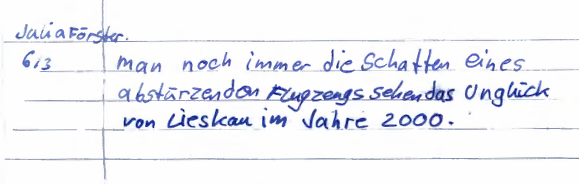 Julia Förster.
613 man noch immer die Schatten eines
abstürzenden Flugzeugs sehen das Unglück
von Lieskau im Jahre 2000.